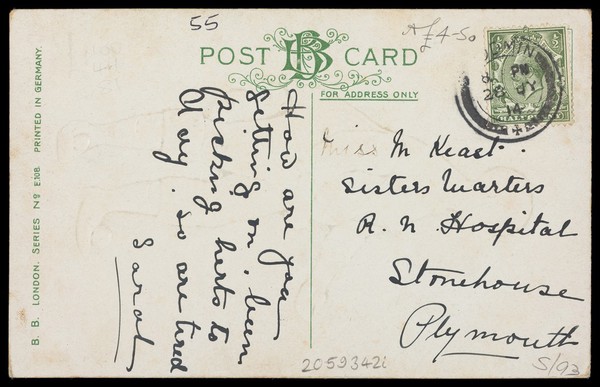 55
A£4-50
POST BB CARD
FOR ADDRESS ONLY
B. B. LONDON. SERIES Nº E108. PRINTED IN GERMANY.
How are you
getting on, been
picking herts to
day. so are tired
Sarah
Miss M Keast.
Sisters Quarters
R. N. Hospital
Stonehouse
Plymouth
PM
14
HALFPENNY
2059342i
S/93